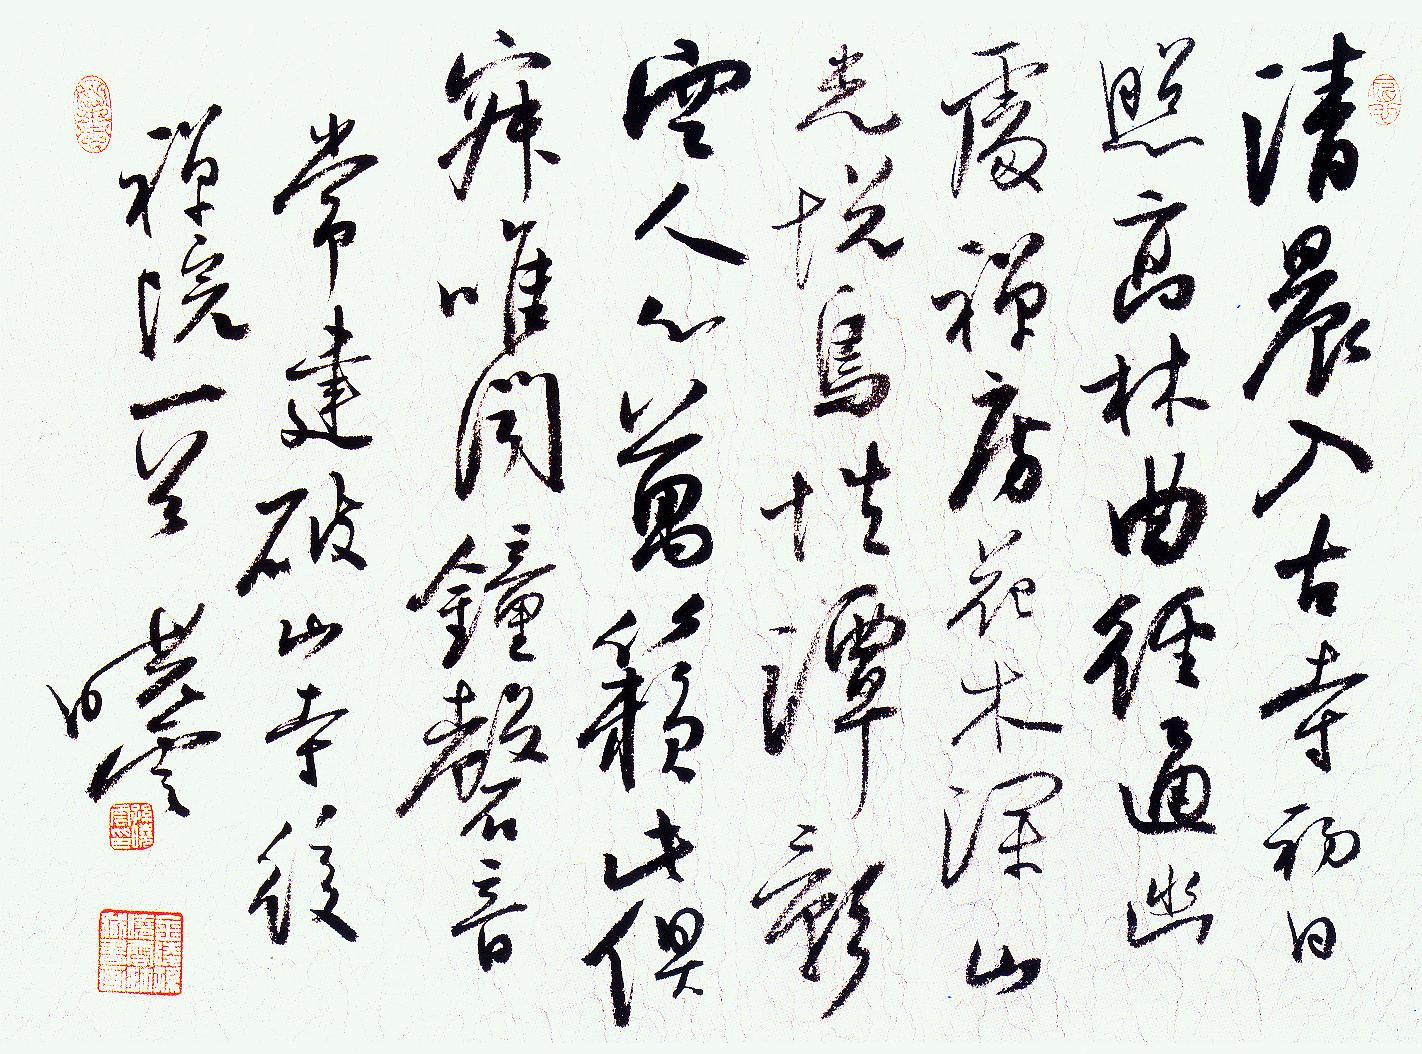 清晨入古寺初日
照高林曲徑通幽
處禪房花木深山
光悅鳥性潭影
空人心萬籟此俱
寂唯聞鐘磬音
常建破山寺後
禪院一首 曉雲